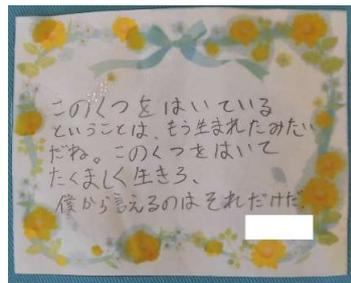 このくつをはいている
ということは、もう生まれたみたい
だね。このくつをはいて
たくましく生きろ、
僕から言えるのはそれだけだ.